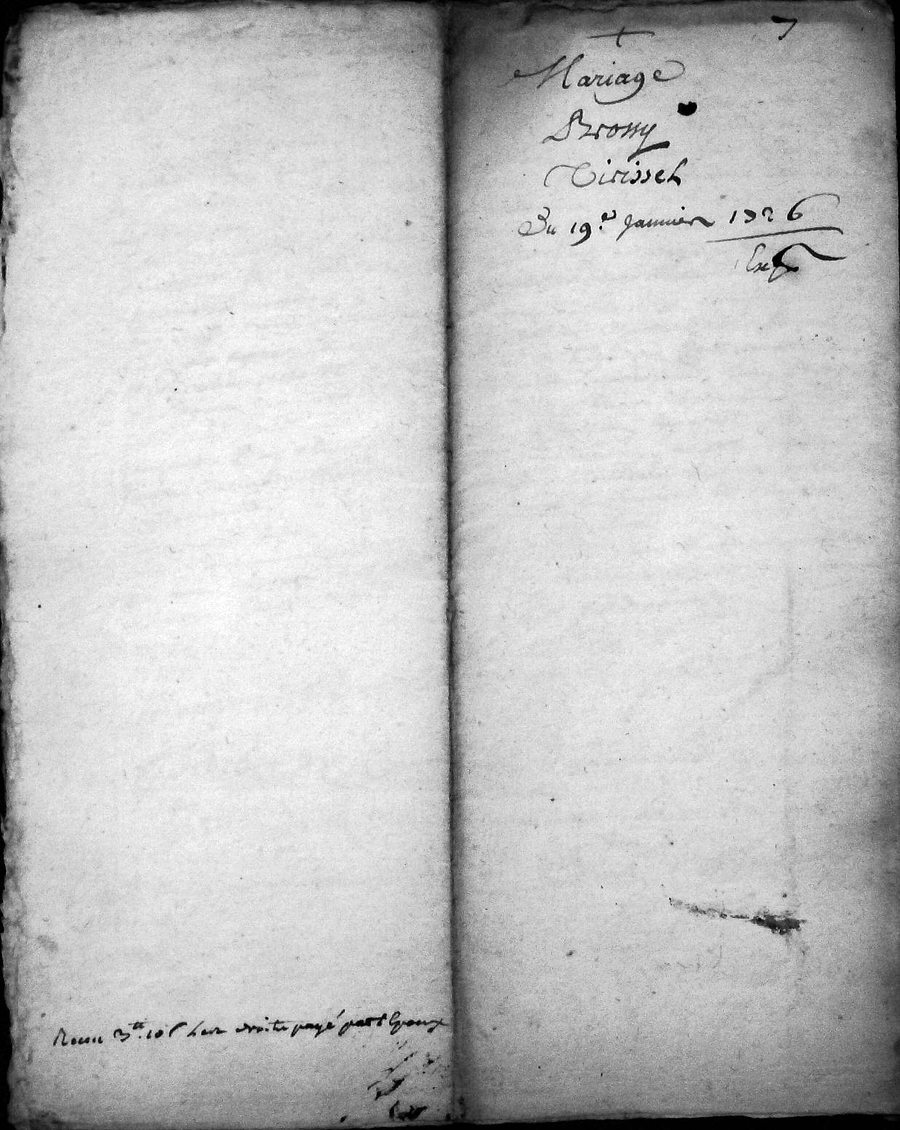 7
Mariage
Brossy
Tirissel
Du 19.e Janvier 1726
Receu 3tt 10s les droits payé par l'Epoux